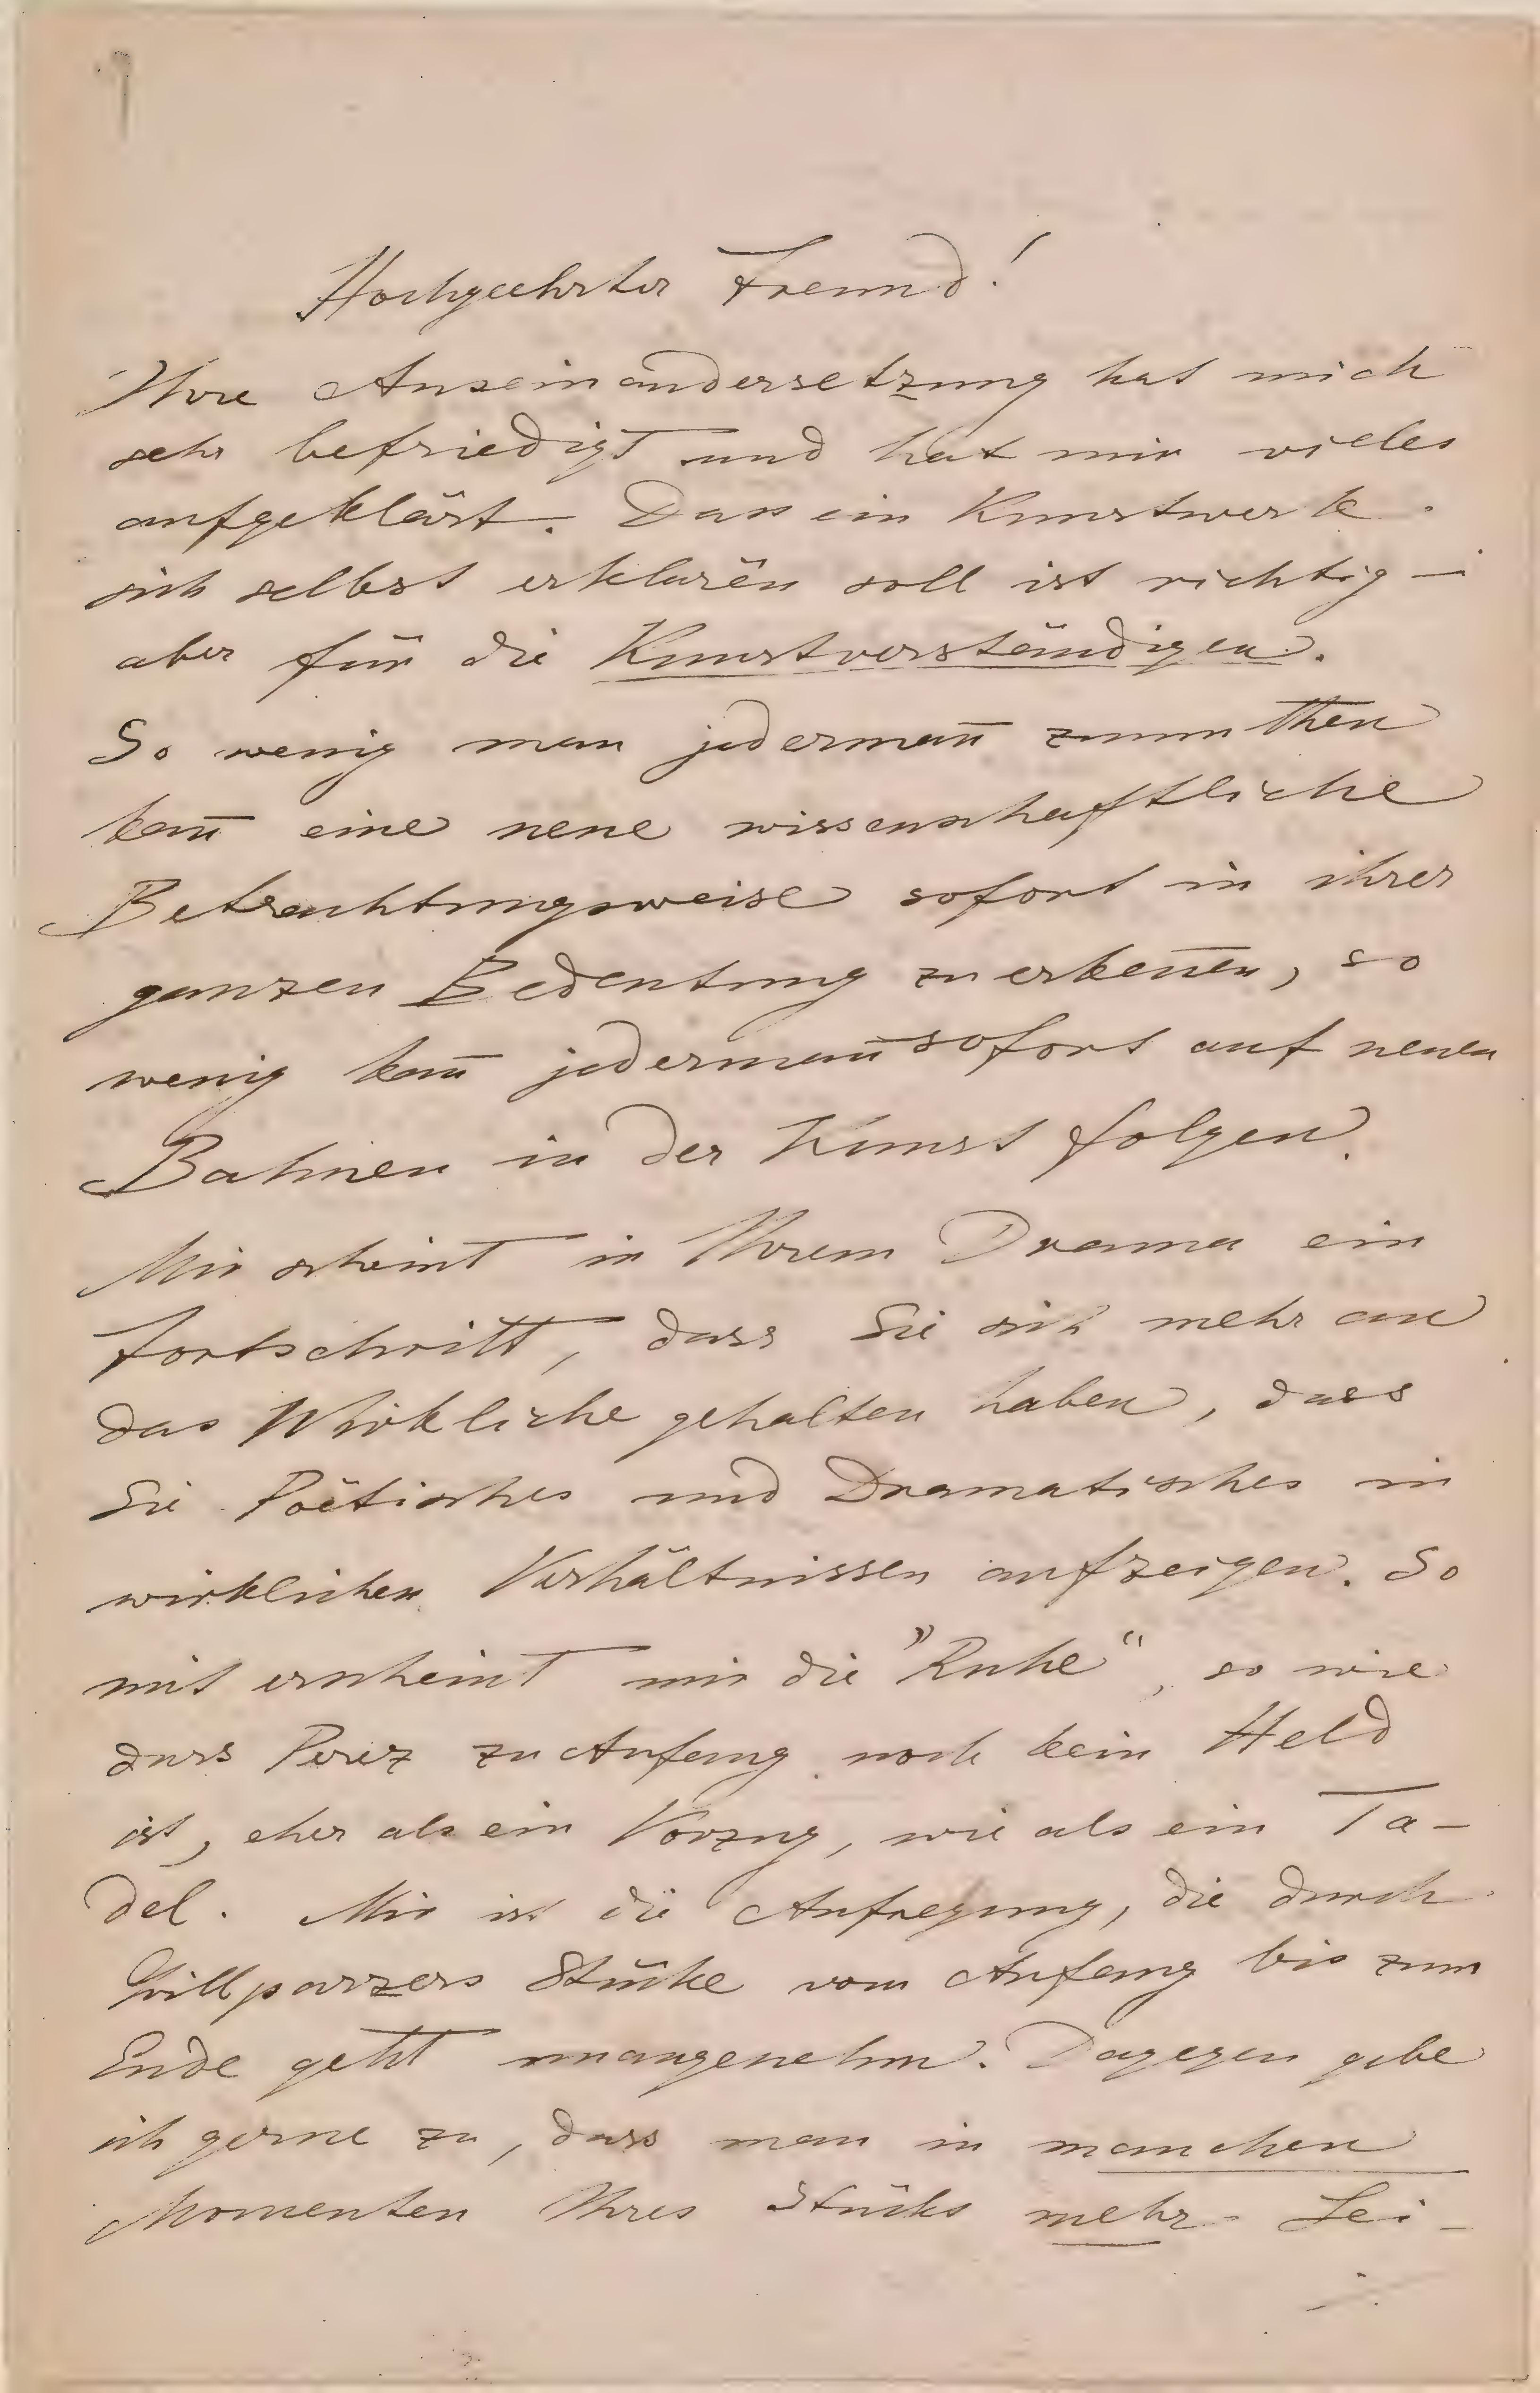 Hochgeehrter Freund!
Ihre Auseinandersetzung hat mich
sehr befriedigt und hat mir vieles
aufgeklärt. Dass ein Kunstwerk
sich selbst erklären soll ist richtig —
aber für die Kunstverständigen.
So wenig man jederman̄ zumuthen
kan̄ eine neue wissenschaftliche
Betrachtungsweise sofort in ihrer
ganzen Bedeutung zu erken̄en, so
wenig kan̄ jederman̄ sofort auf neuen
Bahnen in der Kunst folgen.
Mir scheint in Ihrem Drama ein
Fortschritt, dass Sie sich mehr an
das Wirkliche gehalten haben, dass
Sie Poëtisches und Dramatisches in
wirklichen Verhältnissen aufzeigen. So
mit erscheint mir die "Ruhe", so wie
dass Perez zu Anfang noch kein Held
ist, eher als ein Vorzug, wie als ein Ta-
del. Mir ist die Aufregung, die durch
Grillparzers Stücke vom Anfang bis zum
Ende geht unangenehm. Dagegen gebe
ich gerne zu, dass man in manchen
Momenten Ihres Stücks mehr Lei-